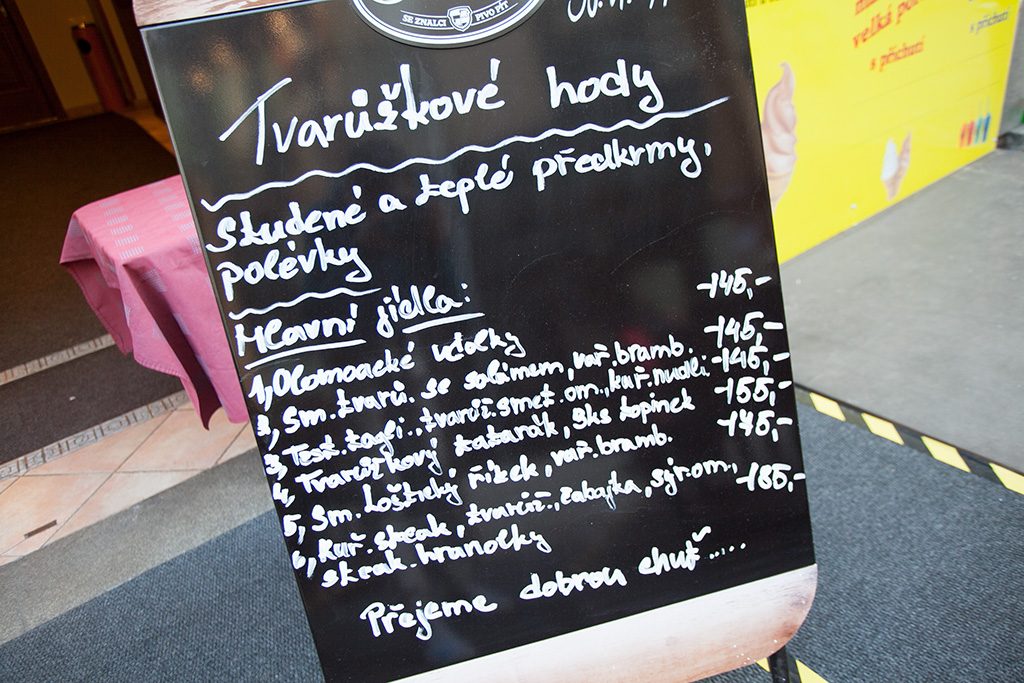 SE ZNALCI PIVO PÍT
Tvarůžkové hody
Studené a teplé předkrmy,
polévky
Hlavní jídla:
1, Olomoucké uzlíky -145,-
2, Sm. tvarů. se salámem, vař. bramb. -145,-
3, Těst. tagli., tvarůž. smet. om., kuř. nudli. -145,-
4, Tvarůžkový tatarák, 3ks topinek -155,-
5, Sm. Loštický řízek, vař. bramb. -145,-
6, Kuř. steak, tvarůž., zabajka, sýr. om., -185,-
steak. hranolky
Přejeme dobrou chuť.....
velká por
s příchutí
s příchutí